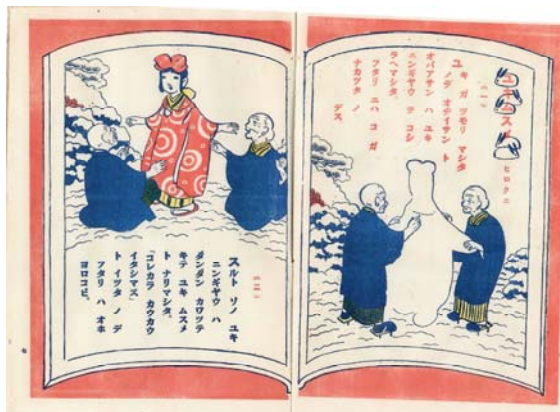 ユキムスメ
ヒロクニ
(一)
ユキ ガ ツモリ マシタ
ノデ オヂイサン ト
オバアサン ハ ユキ
ニンギヤウ ヲ コシ
ラヘマシタ。
フタリ ニハ コ ガ
ナカツタ ノ
デス。
(二)
スルト ソノ ユキ
ニンギヤウ ハ
ダンダン カワツテ
キテ ユキ ムスメ
ト ナリマシタ。
「コレカラ カウカウ
イタシマス」
ト イツタ ノ デ
フタリ ハ オホ
ヨロコビ。